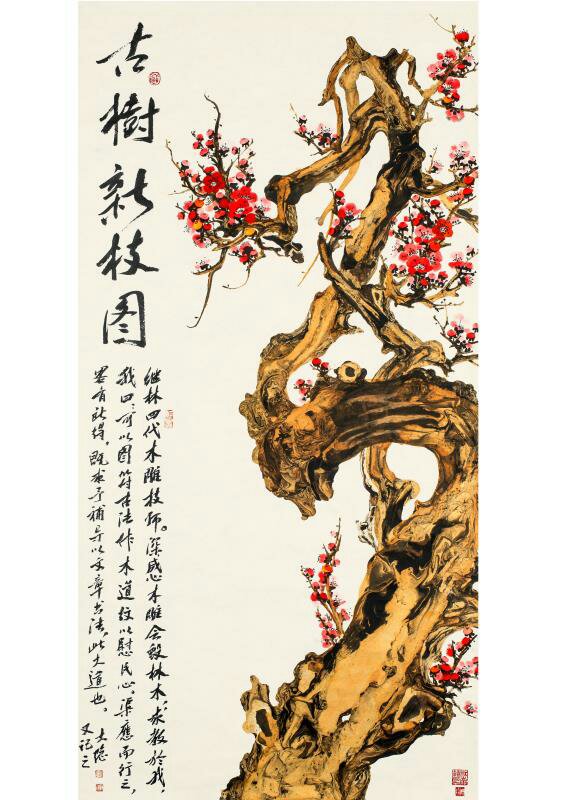 古樹新枝图
继林四代木雕技师。深感木雕会毁林木,求教於我,
我曰:可以图符古法作木道纹以慰民心。渠應而行之,
畧有所得。既求予補导以文章书法,此大道也。大隐
又记之